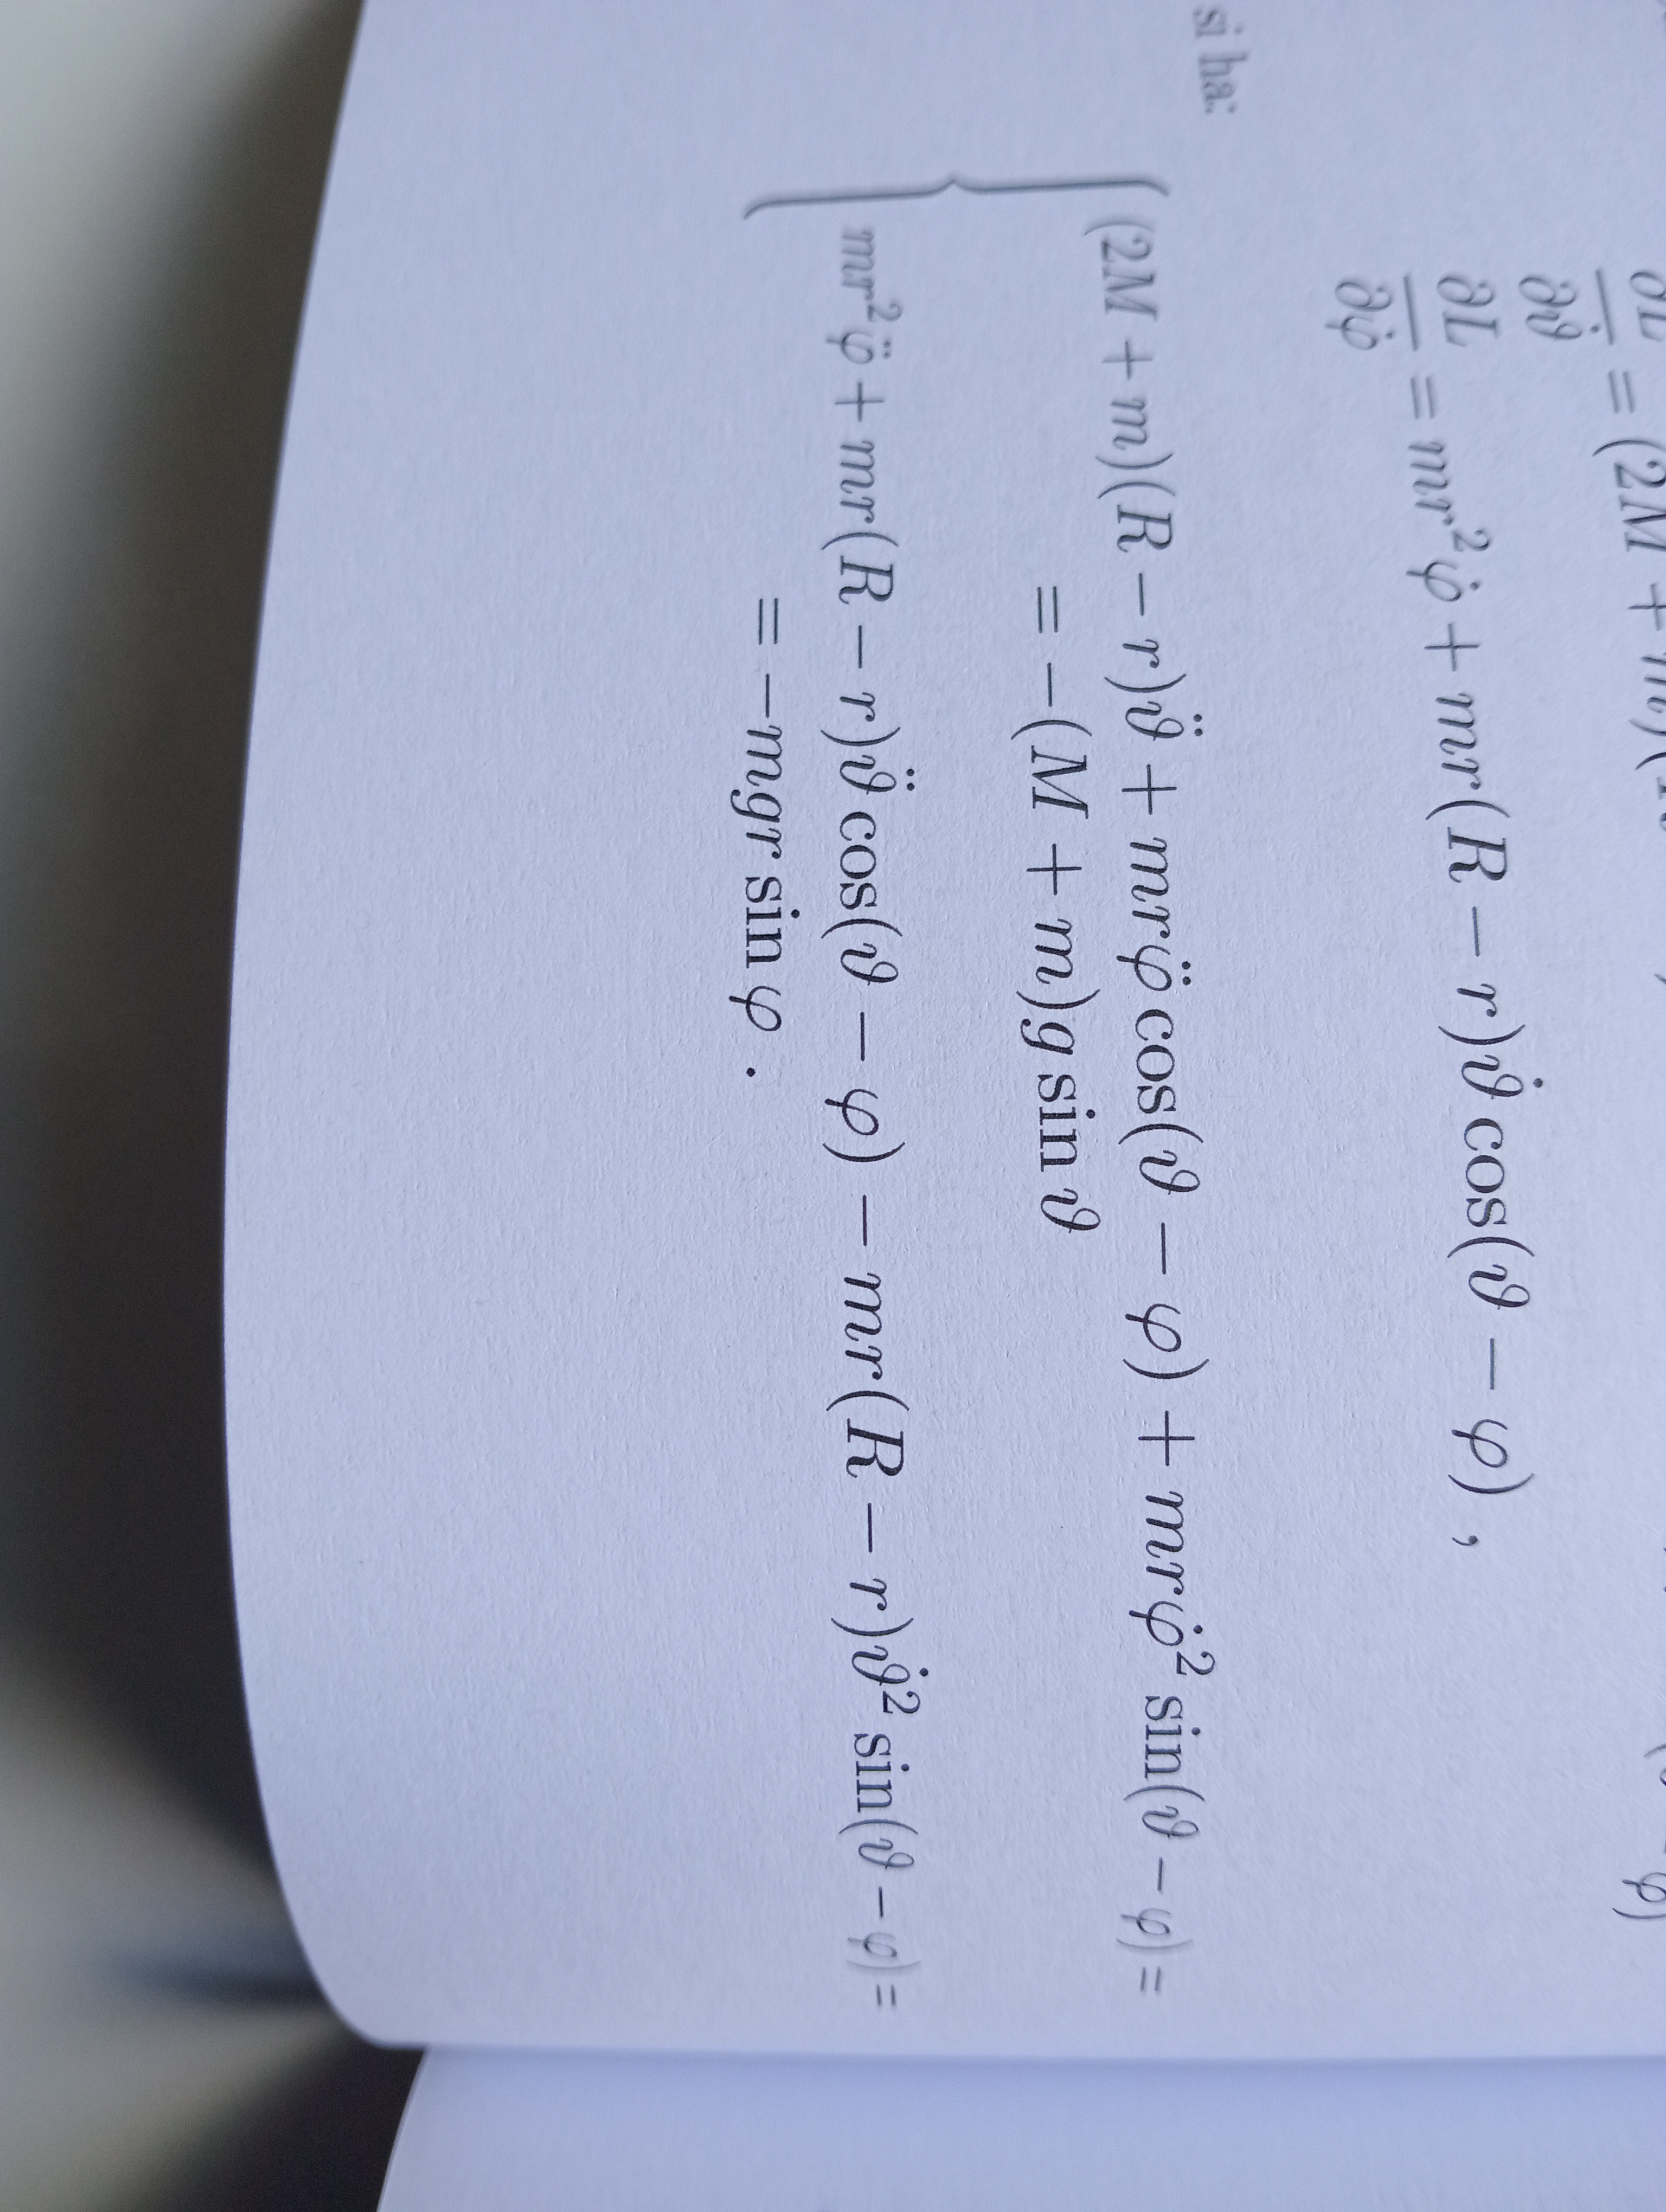 ∂L/∂ϑ̇ = (2M + m)(
∂L/∂φ̇ = mr²φ̇ + mr(R − r)ϑ̇ cos(ϑ − φ) ,
si ha:
(2M + m)(R − r)ϑ̈ + mrφ̈ cos(ϑ − φ) + mrφ̇² sin(ϑ − φ) =
= −(M + m)g sin ϑ
mr²φ̈ + mr(R − r)ϑ̈ cos(ϑ − φ) − mr(R − r)ϑ̇² sin(ϑ − φ) =
= −mgr sin φ .